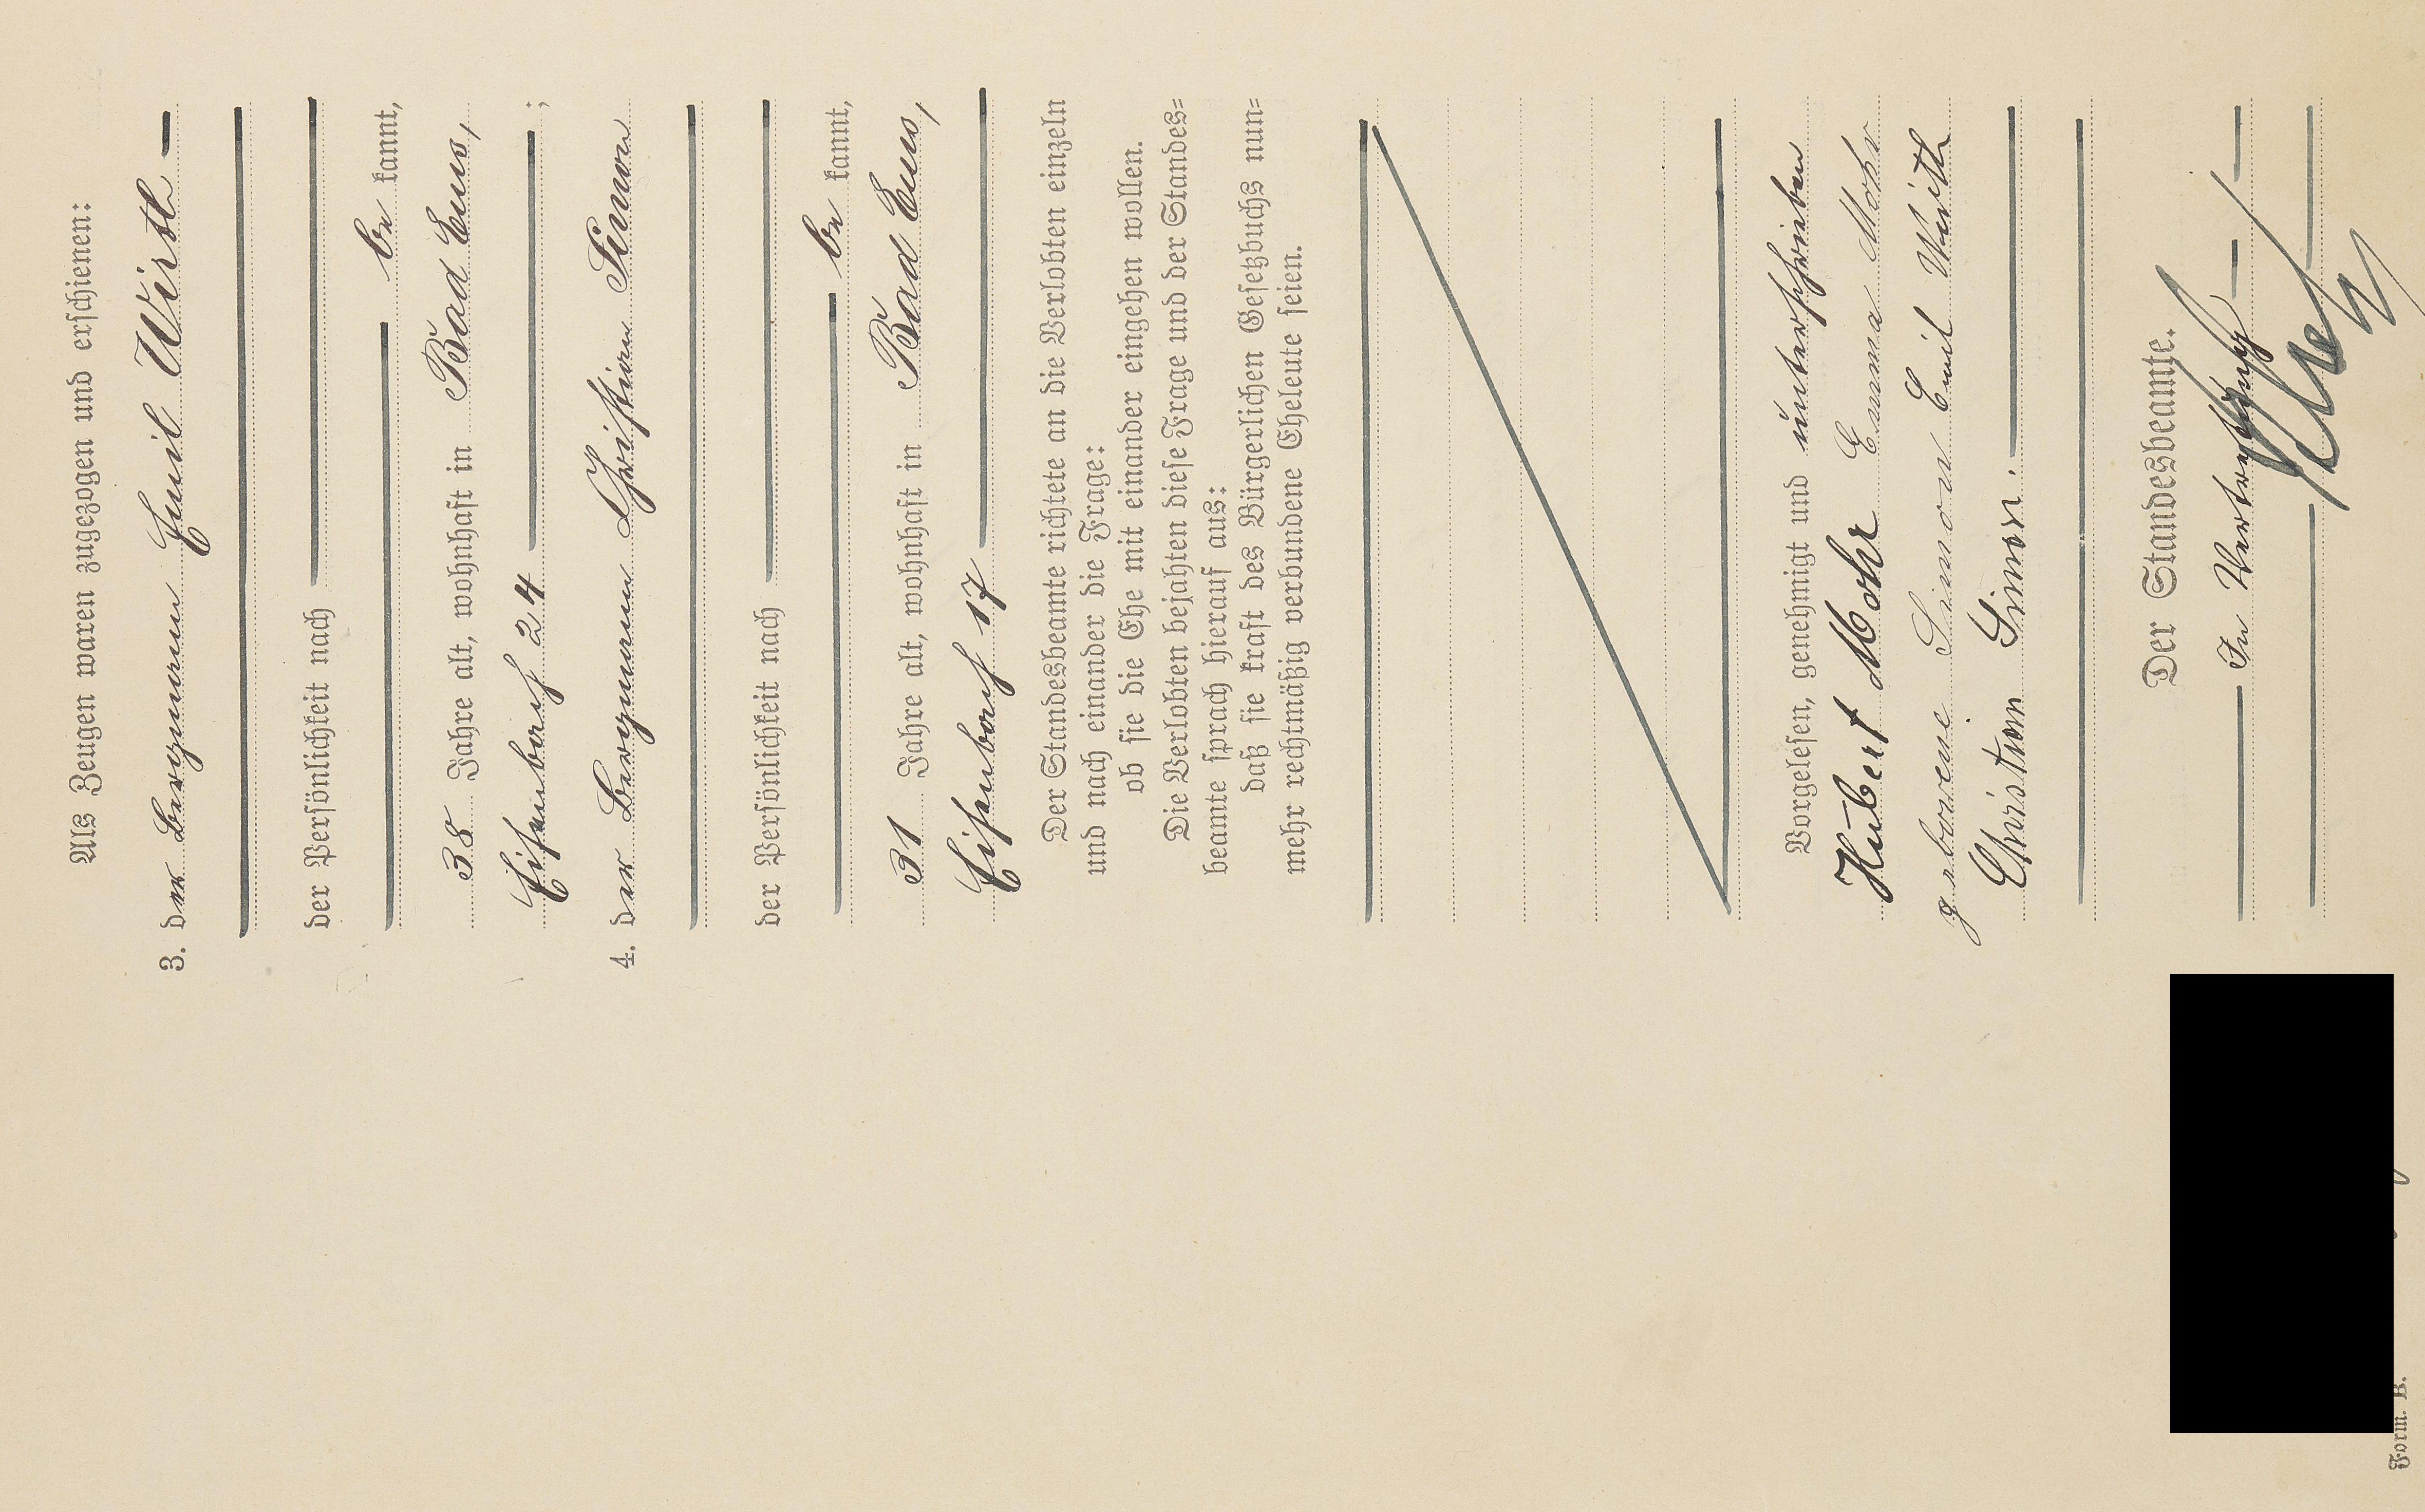 Als Zeugen waren zugezogen und erschienen:
3. der Bergmann Emil Wirth
der Persönlichkeit nach
be kannt,
38 Jahre alt, wohnhaft in Bad Ems,
Eisenbach 24 ;
4. der Bergmann Christian Simon
der Persönlichkeit nach
be kannt,
31 Jahre alt, wohnhaft in Bad Ems,
Eisenbach 17
Der Standesbeamte richtete an die Verlobten einzeln
und nach einander die Frage:
ob sie die Ehe mit einander eingehen wollen.
Die Verlobten bejahten diese Frage und der Standes=
beamte sprach hierauf aus:
daß sie kraft des Bürgerlichen Gesetzbuchs nun=
mehr rechtmäßig verbundene Eheleute seien.
Vorgelesen, genehmigt und unterschrieben
Hubert Mohr Emma Mohr
geborene Simon Emil Wirth
Christian Simon.
Der Standesbeamte.
In Vertretung
Form. B.